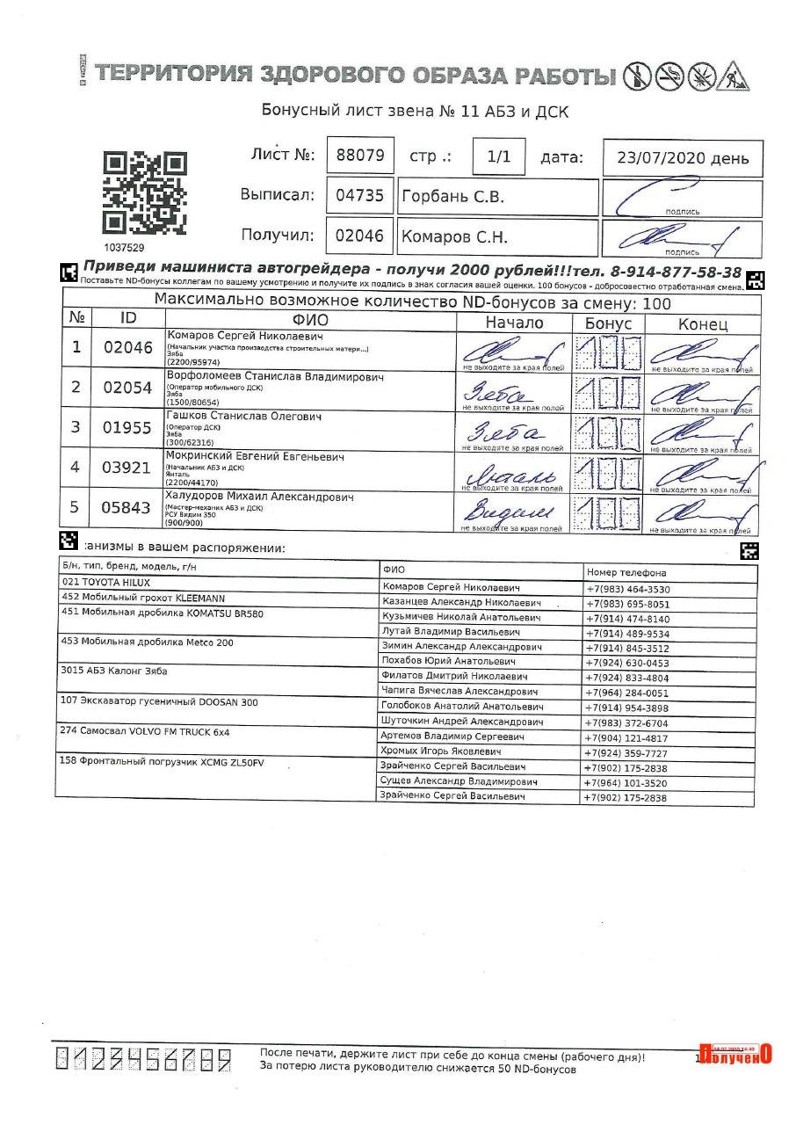 ! ТЕРРИТОРИЯ ЗДОРОВОГО ОБРАЗА РАБОТЫ
Бонусный лист звена № 11 АБЗ и ДСК
Лист №: 88079 стр .: 1/1 дата: 23/07/2020 день
Выписал: 04735 Горбань С.В.
подпись
Получил: 02046 Комаров С.Н.
подпись
1037529
Приведи машиниста автогрейдера - получи 2000 рублей!!!тел. 8-914-877-58-38
Поставьте ND-бонусы коллегам по вашему усмотрению и получите их подпись в знак согласия вашей оценки. 100 бонусов - добросовестно отработанная смена.
Максимально возможное количество ND-бонусов за смену: 100
№ ID ФИО Начало Бонус Конец
1 02046 Комаров Сергей Николаевич 100
(Начальник участка производства строительных матери...)
Зяба
(2200/95974) не выходите за края полей не выходите за края полей
2 02054 Ворфоломеев Станислав Владимирович Зяба 100
(Оператор мобильного ДСК)
Зяба
(1500/80654) не выходите за края полей не выходите за края полей
3 01955 Гашков Станислав Олегович Зяба 100
(Оператор ДСК)
Зяба
(300/62316) не выходите за края полей не выходите за края полей
4 03921 Мокринский Евгений Евгеньевич Янталь 100
(Начальник АБЗ и ДСК)
Янталь
(2200/44170) не выходите за края полей не выходите за края полей
5 05843 Халудоров Михаил Александрович Видим 100
(Мастер-механик АБЗ и ДСК)
РСУ Видим 350
(900/900) не выходите за края полей не выходите за края полей
:анизмы в вашем распоряжении:
Б/н, тип, бренд, модель, г/н ФИО Номер телефона
021 TOYOTA HILUX Комаров Сергей Николаевич +7(983) 464-3530
452 Мобильный грохот KLEEMANN Казанцев Александр Николаевич +7(983) 695-8051
451 Мобильная дробилка KOMATSU BR580 Кузьмичев Николай Анатольевич +7(914) 474-8140
Лутай Владимир Васильевич +7(914) 489-9534
453 Мобильная дробилка Metco 200 Зимин Александр Александрович +7(914) 845-3512
Похабов Юрий Анатольевич +7(924) 630-0453
3015 АБЗ Калонг Зяба Филатов Дмитрий Николаевич +7(924) 833-4804
Чапига Вячеслав Александрович +7(964) 284-0051
107 Экскаватор гусеничный DOOSAN 300 Голобоков Анатолий Анатольевич +7(914) 954-3898
Шуточкин Андрей Александрович +7(983) 372-6704
274 Самосвал VOLVO FM TRUCK 6x4 Артемов Владимир Сергеевич +7(904) 121-4817
Хромых Игорь Яковлевич +7(924) 359-7727
158 Фронтальный погрузчик XCMG ZL50FV Зрайченко Сергей Васильевич +7(902) 175-2838
Сущев Александр Владимирович +7(964) 101-3520
Зрайченко Сергей Васильевич +7(902) 175-2838
0123456789
После печати, держите лист при себе до конца смены (рабочего дня)!
За потерю листа руководителю снижается 50 ND-бонусов
ПолученО